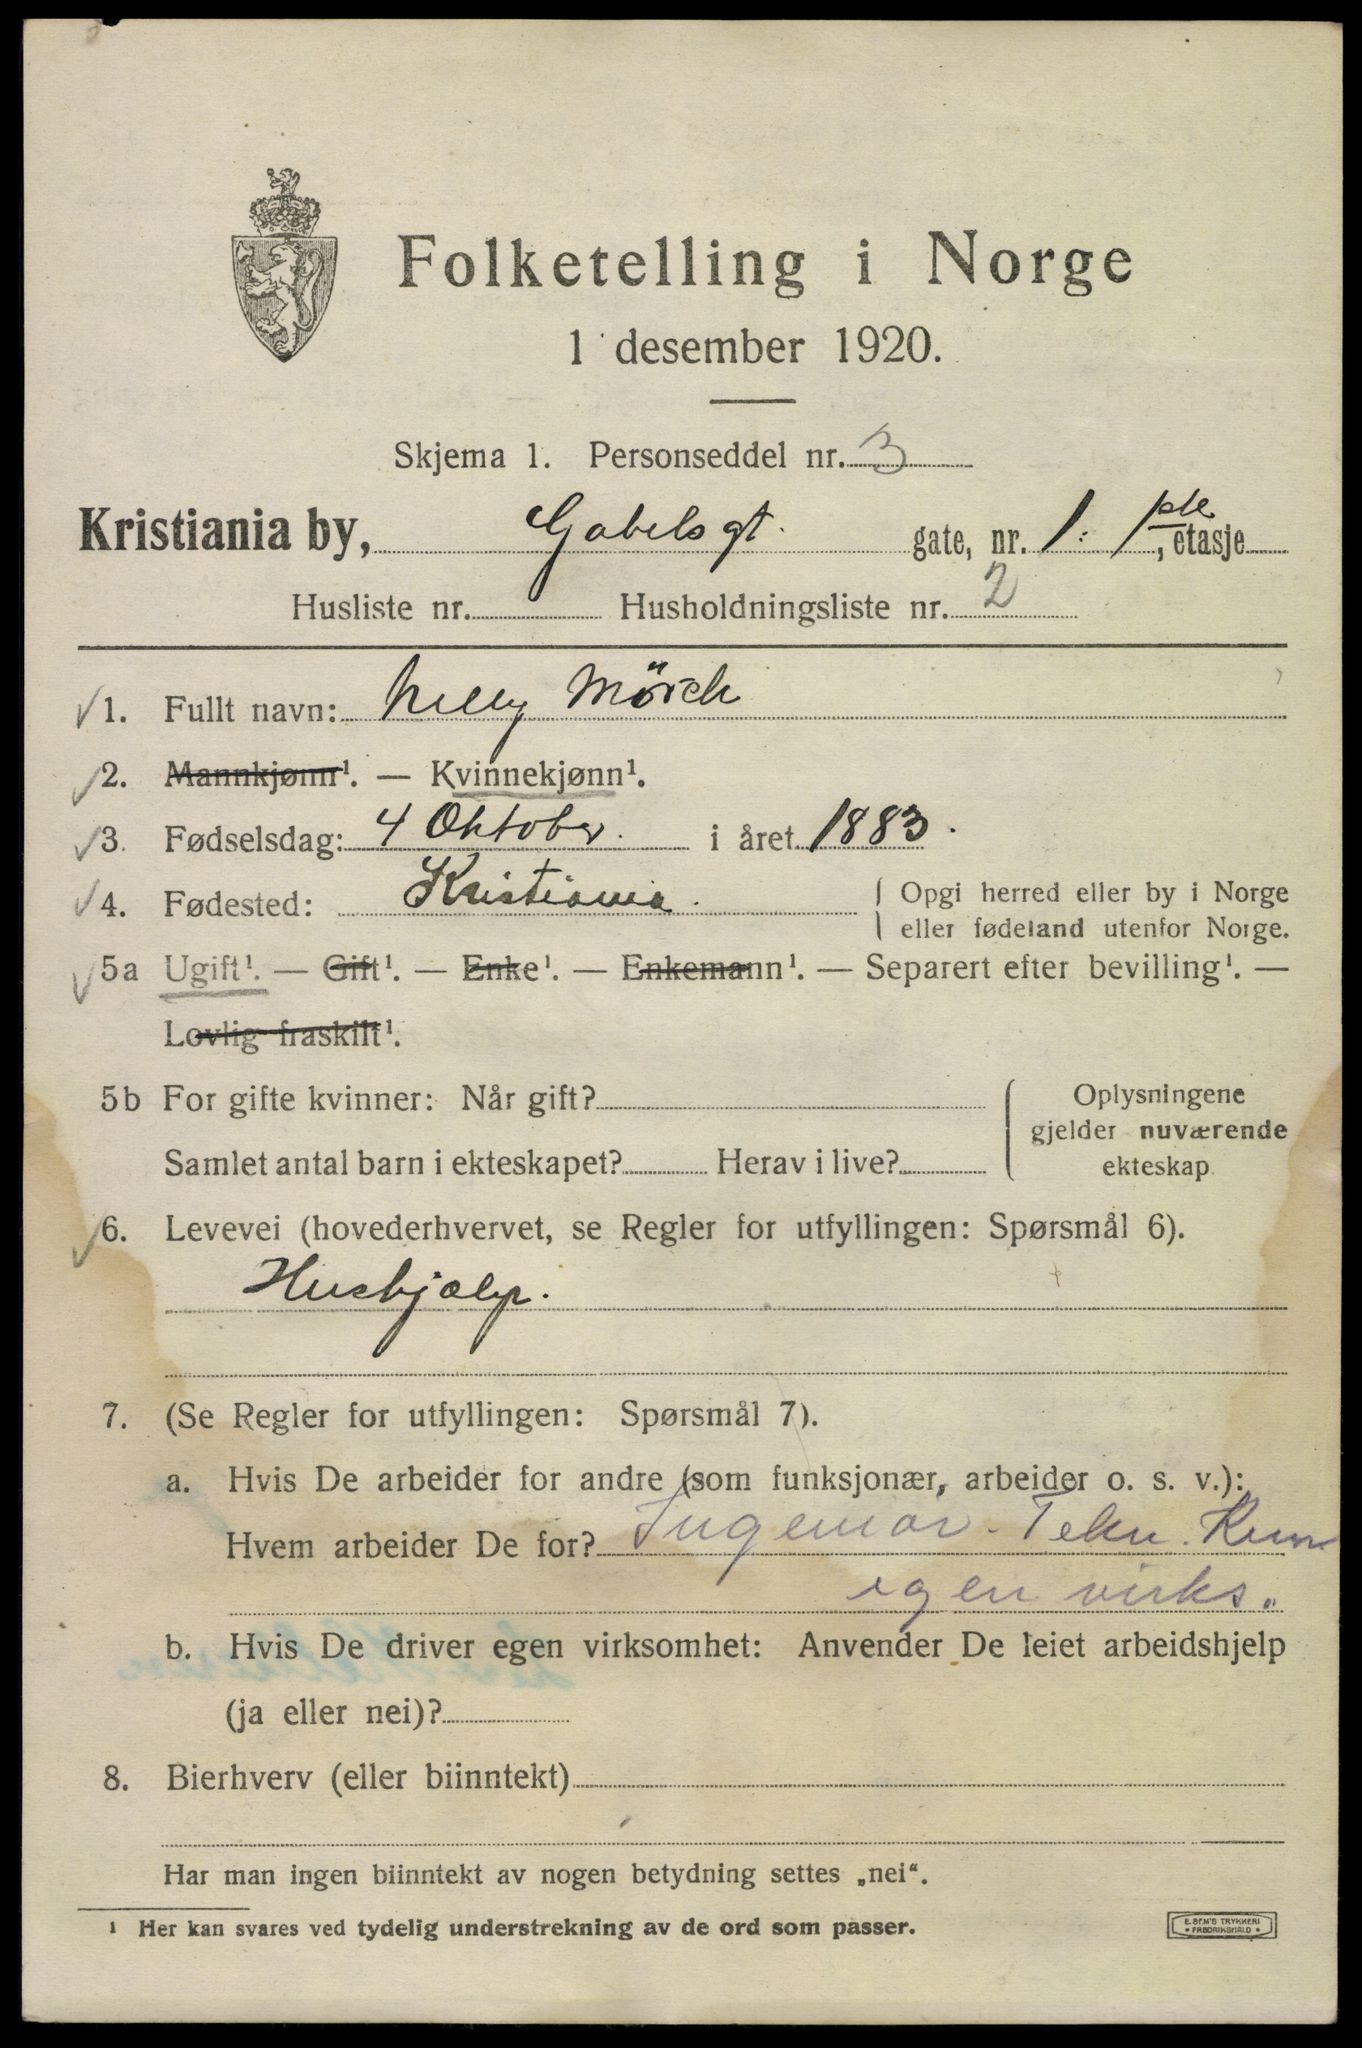 Folketelling i Norge
1 desember 1920.
Skjema 1. Personseddel nr. 3
Kristiania by, Gabels gt. gate, nr. 1 : 1ste, etasje
Husliste nr. Husholdningsliste nr. 2
1. Fullt navn: Nelly Mörch
2. Mannkjønn¹. — Kvinnekjønn¹.
3. Fødselsdag: 4 Oktober. i året 1883.
4. Fødested: Kristiania. Opgi herred eller by i Norge
eller fødeland utenfor Norge.
5a Ugift¹. — Gift¹. — Enke¹. — Enkemann¹. — Separert efter bevilling¹. —
Lovlig fraskilt¹.
5b For gifte kvinner: Når gift? Oplysningene
gjelder nuværende
Samlet antal barn i ekteskapet? Herav i live? ekteskap
6. Levevei (hovederhvervet, se Regler for utfyllingen: Spørsmål 6).
Hushjælp.
7. (Se Regler for utfyllingen: Spørsmål 7).
a. Hvis De arbeider for andre (som funksjonær, arbeider o. s. v.):
Hvem arbeider De for? Ingeniør. Tekn.
egen virks.
b. Hvis De driver egen virksomhet: Anvender De leiet arbeidshjelp
(ja eller nei)?
8. Bierhverv (eller biinntekt)
Har man ingen biinntekt av nogen betydning settes „nei“.
¹ Her kan svares ved tydelig understrekning av de ord som passer.
E. SEM'S TRYKKERI
FREDRIKSHALD